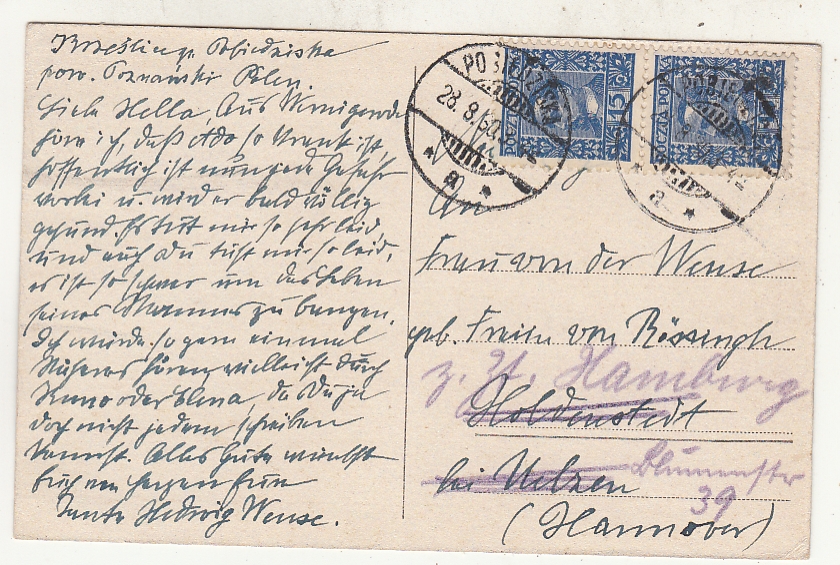 pow. Poznański Polen.
Liebe Hella, Aus Wernigerode
höre ich, daß Ado so krank ist,
hoffentlich ist nun jede Gefahr
vorbei u. wird er bald völlig
gesund. Es tut mir so sehr leid,
und auch Du tust mir so leid,
es ist so schwer um das Leben
seines Mannes zu bangen.
Ich würde so gern einmal
Näheres hören, vielleicht durch
Kuno oder Elena, da Du ja
doch nicht jedem schreiben
kannst. Alles Gute wünscht
Euch von Herzen Eure
Tante Hedwig Wense.
28. 8. 30
a
POCZTA POLSKA
15
a
An
Frau von der Wense
geb. Freiin von Rössingh
z. Zt. Hamburg
Holdenstedt
bei Uelzen
Blumenstr
39
(Hannover)